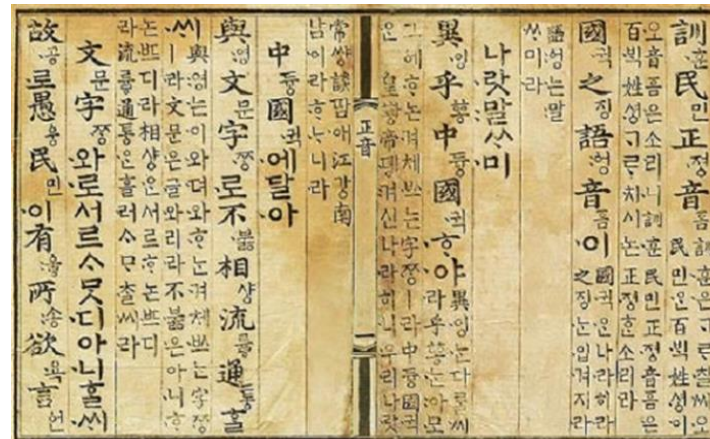 訓훈民민正졍音ᅙᅳᆷ 訓훈은ᄀᆞᄅᆞ칠씨오
民민ᄋᆞᆫ百ᄇᆡᆨ姓셩이
오音ᅙᅳᆷ은소리니訓훈民민正졍音ᅙᅳᆷ은
百ᄇᆡᆨ姓셩ᄀᆞᄅᆞ치시논正졍ᄒᆞᆫ소리라
國귁之징語ᅌᅥᆼ音ᅙᅳᆷ이 國귁ᄋᆞᆫ나라히라
之징ᄂᆞᆫ입겨지라
語ᅌᅥᆼ는말
ᄊᆞ미라
나랏말ᄊᆞ미
異잉乎ᅘᅩᆼ中듀ᇰ國귁ᄒᆞ야 異잉ᄂᆞᆫ다ᄅᆞᆯ씨
라乎ᅘᅩᆼᄂᆞᆫ아모
그ᅌᅦᄒᆞ논겨체ᄡᅳ는字ᄍᆞᆼㅣ라中듀ᇰ國귁
ᄋᆞᆫ皇ᅘᅪᇰ帝뎽겨신나라히니우리나랏
正音
常쌰ᇰ談땀애江가ᇰ南
남이라ᄒᆞᄂᆞ니라
中듀ᇰ國귁에달아
與영文문字ᄍᆞᆼ로不부ᇙ相샤ᇰ流류ᇢ通토ᇰᄒᆞᆯ
ᄊᆡ與영는이와뎌와ᄒᆞ논겨체ᄡᅳ는字ᄍᆞᆼ
ㅣ라文문은글와리라不부ᇙ은아니ᄒᆞ
논ᄠᅳ디라相샤ᇰᄋᆞᆫ서르ᄒᆞ논ᄠᅳ디
라流류ᇢ通토ᇰᄋᆞᆫ흘러ᄉᆞᄆᆞᄎᆞᆯ씨라
文문字ᄍᆞᆼ와로서르ᄉᆞᄆᆞᆺ디아니ᄒᆞᆯᄊᆡ
故공로愚ᅌᅮᆼ民민이有ᅌᅮᇢ所송欲욕言ᅌᅥᆫ